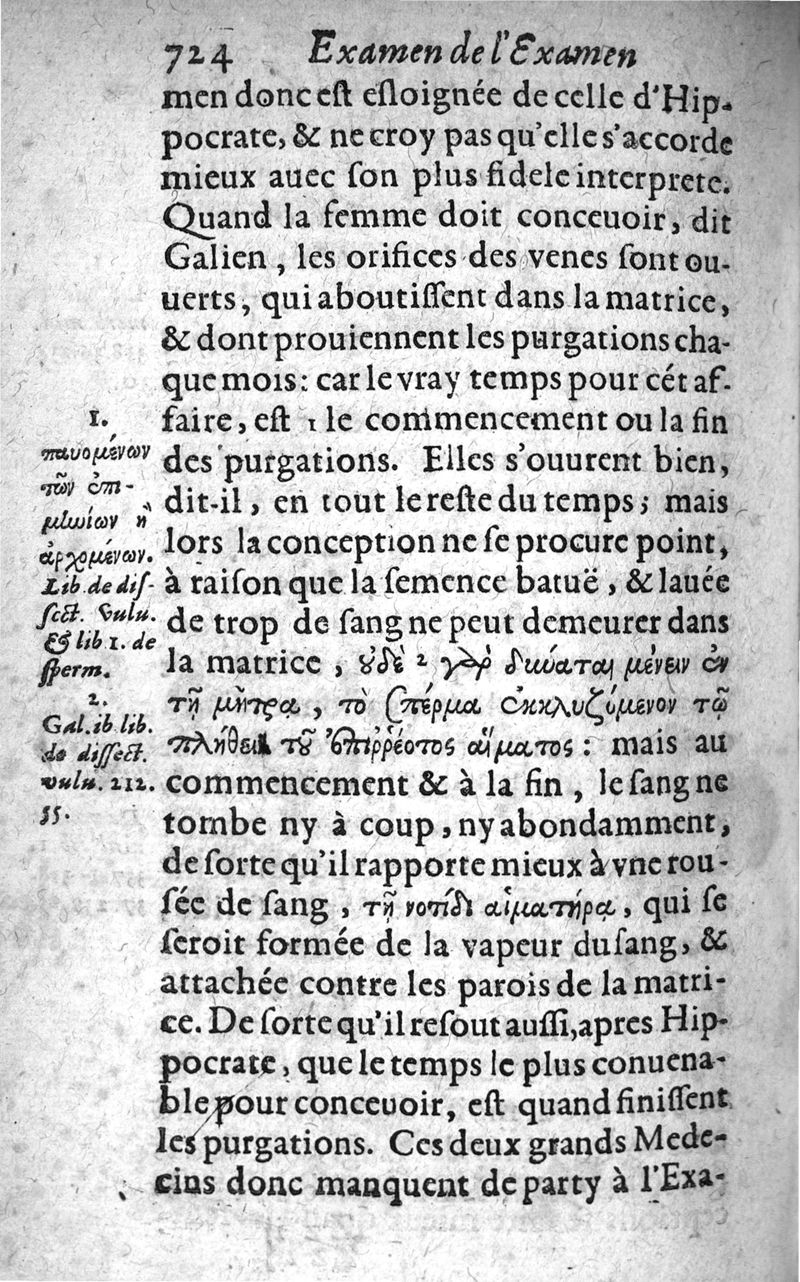 724 Examen de l'Examen
men donc est esloignée de celle d'Hip-
pocrate, & ne croy pas qu'elle s'accorde
mieux auec son plus fidele interprete.
Quand la femme doit conceuoir, dit
Galien, les orifices des venes sont ou-
uerts, qui aboutissent dans la matrice,
& dont prouiennent les purgations cha-
que mois: car le vray temps pour cét af-
faire, est 1 le commencement ou la fin
des purgations. Elles s'ouurent bien,
dit-il, en tout le reste du temps; mais
lors la conception ne se procure point,
à raison que la semence batuë, & lauée
de trop de sang ne peut demeurer dans
la matrice, οὐδὲ 2 γὰρ δύναται μένειν ἐν
τῇ μήτρᾳ, τὸ σπέρμα ἐκκλυζόμενον τῷ
πλήθει τοῦ ἐπιῤῥέοτος αἵματος: mais au
commencement & à la fin, le sang ne
tombe ny à coup, ny abondamment,
de sorte qu'il rapporte mieux à vne rou-
sée de sang, τῇ νοτίδι αἱματήρᾳ, qui se
seroit formée de la vapeur du sang, &
attachée contre les parois de la matri-
ce. De sorte qu'il resout aussi, apres Hip-
pocrate, que le temps le plus conuena-
ble pour conceuoir, est quand finissent
les purgations. Ces deux grands Mede-
cins donc manquent de party à l'Exa-
1.
παυομένων
τῶν ἐπι-
μηνίων ἢ
ἀρχομένων.
Lib. de dis-
sect. Vulu.
& lib 1. de
sperm.
2.
Gal. ib lib.
de dissect.
vulu. 212.
55.